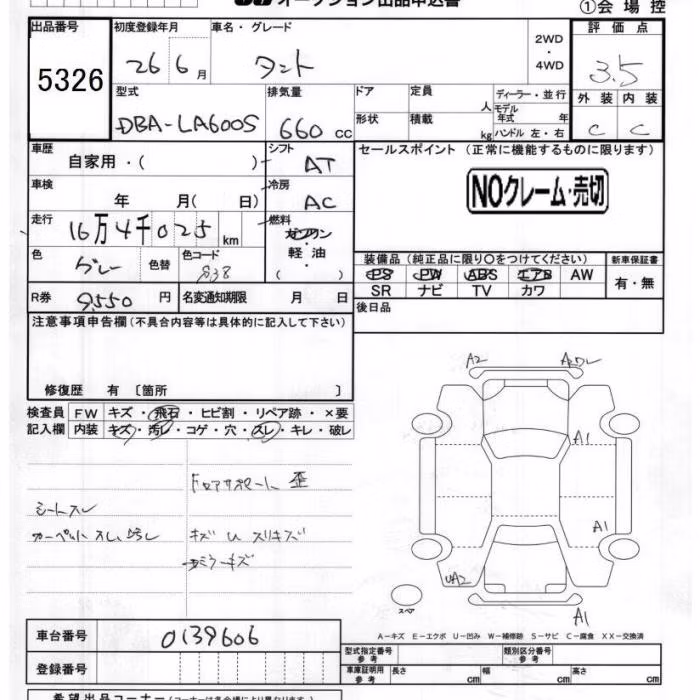 オークション出品申込書
①会場控
出品番号 初度登録年月 車名・グレード 2WD・4WD 評価点
5326 26 6月 タント 3.5
型式 排気量 ドア 定員 人 ディーラー・並行 外装 内装
DBA-LA600S 660 cc 形状 積載 kg モデル年式 年 ハンドル 左・右 C C
車歴 シフト セールスポイント (正常に機能するものに限ります)
自家用・( ) AT
NOクレーム・売切
車検 冷房
年 月( 日) AC
走行 燃料
16万4千025km ガソリン
軽油
( )
色 色替 色コード 装備品 (純正品に限り〇をつけてください) 新車保証書
グレー 838 PS PW ABS エアB AW 有・無
SR ナビ TV カワ
R券 9,550円 名変通知期限 月 日 後日品
注意事項申告欄(不具合内容等は具体的に記入して下さい)
修復歴 有 〔箇所 〕
検査員 FW キズ・飛石・ヒビ割・リペア跡・×要
記入欄 内装 キズ・汚レ・コゲ・穴・スレ・キレ・破レ
A2
A1
歪
シートスレ
A1
UA2
スペア
A1
A-キズ E-エクボ U-凹み W-補修跡 S-サビ C-腐食 XX-交換済
車台番号 0139606
型式指定番号 参考 類別区分番号 参考
登録番号 車庫証明用 参考 長さ cm 幅 cm 高さ cm
希望出品コーナー